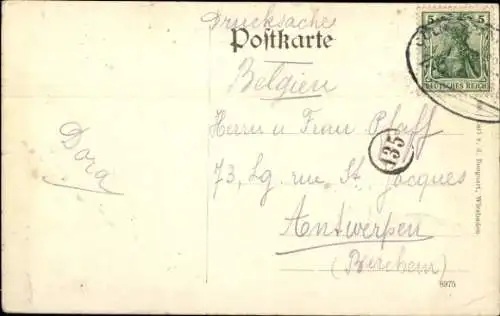 Drucksache
Postkarte
5 5
DEUTSCHES REICH
Belgien
Herrn u Frau Pfaff
135
73, Lg. rue St. Jacques
Antwerpen
(Berchem)
Dora
Wiesbaden
8975